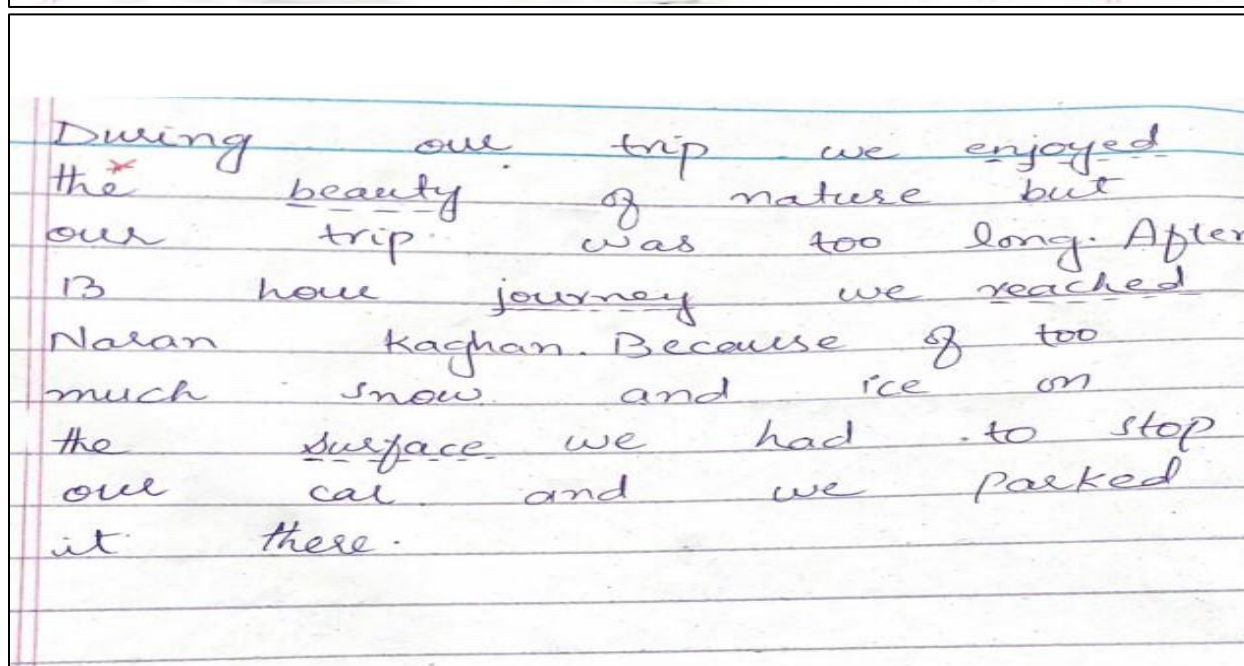 During our trip we enjoyed
the beauty of nature but
our trip was too long. After
13 hour journey we reached
Naran Kaghan. Because of too
much snow and ice on
the surface we had to stop
our car and we parked
it there.